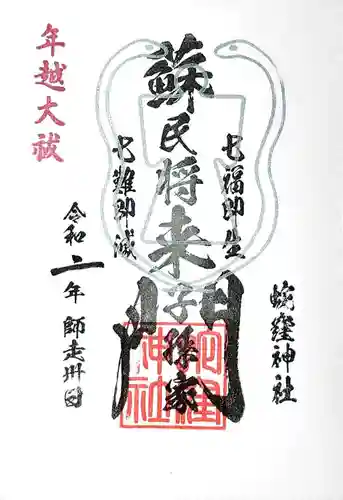 年越大祓
蘇民将来子孫家門
七福即生
七難即滅
蛇窪神社
令和二年師走卅日